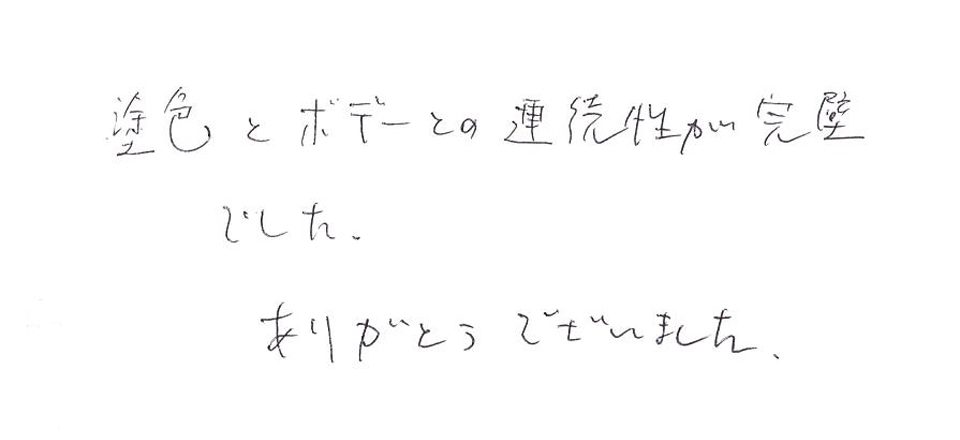 塗色とボデーとの連続性が完璧
でした.
ありがとうございました.